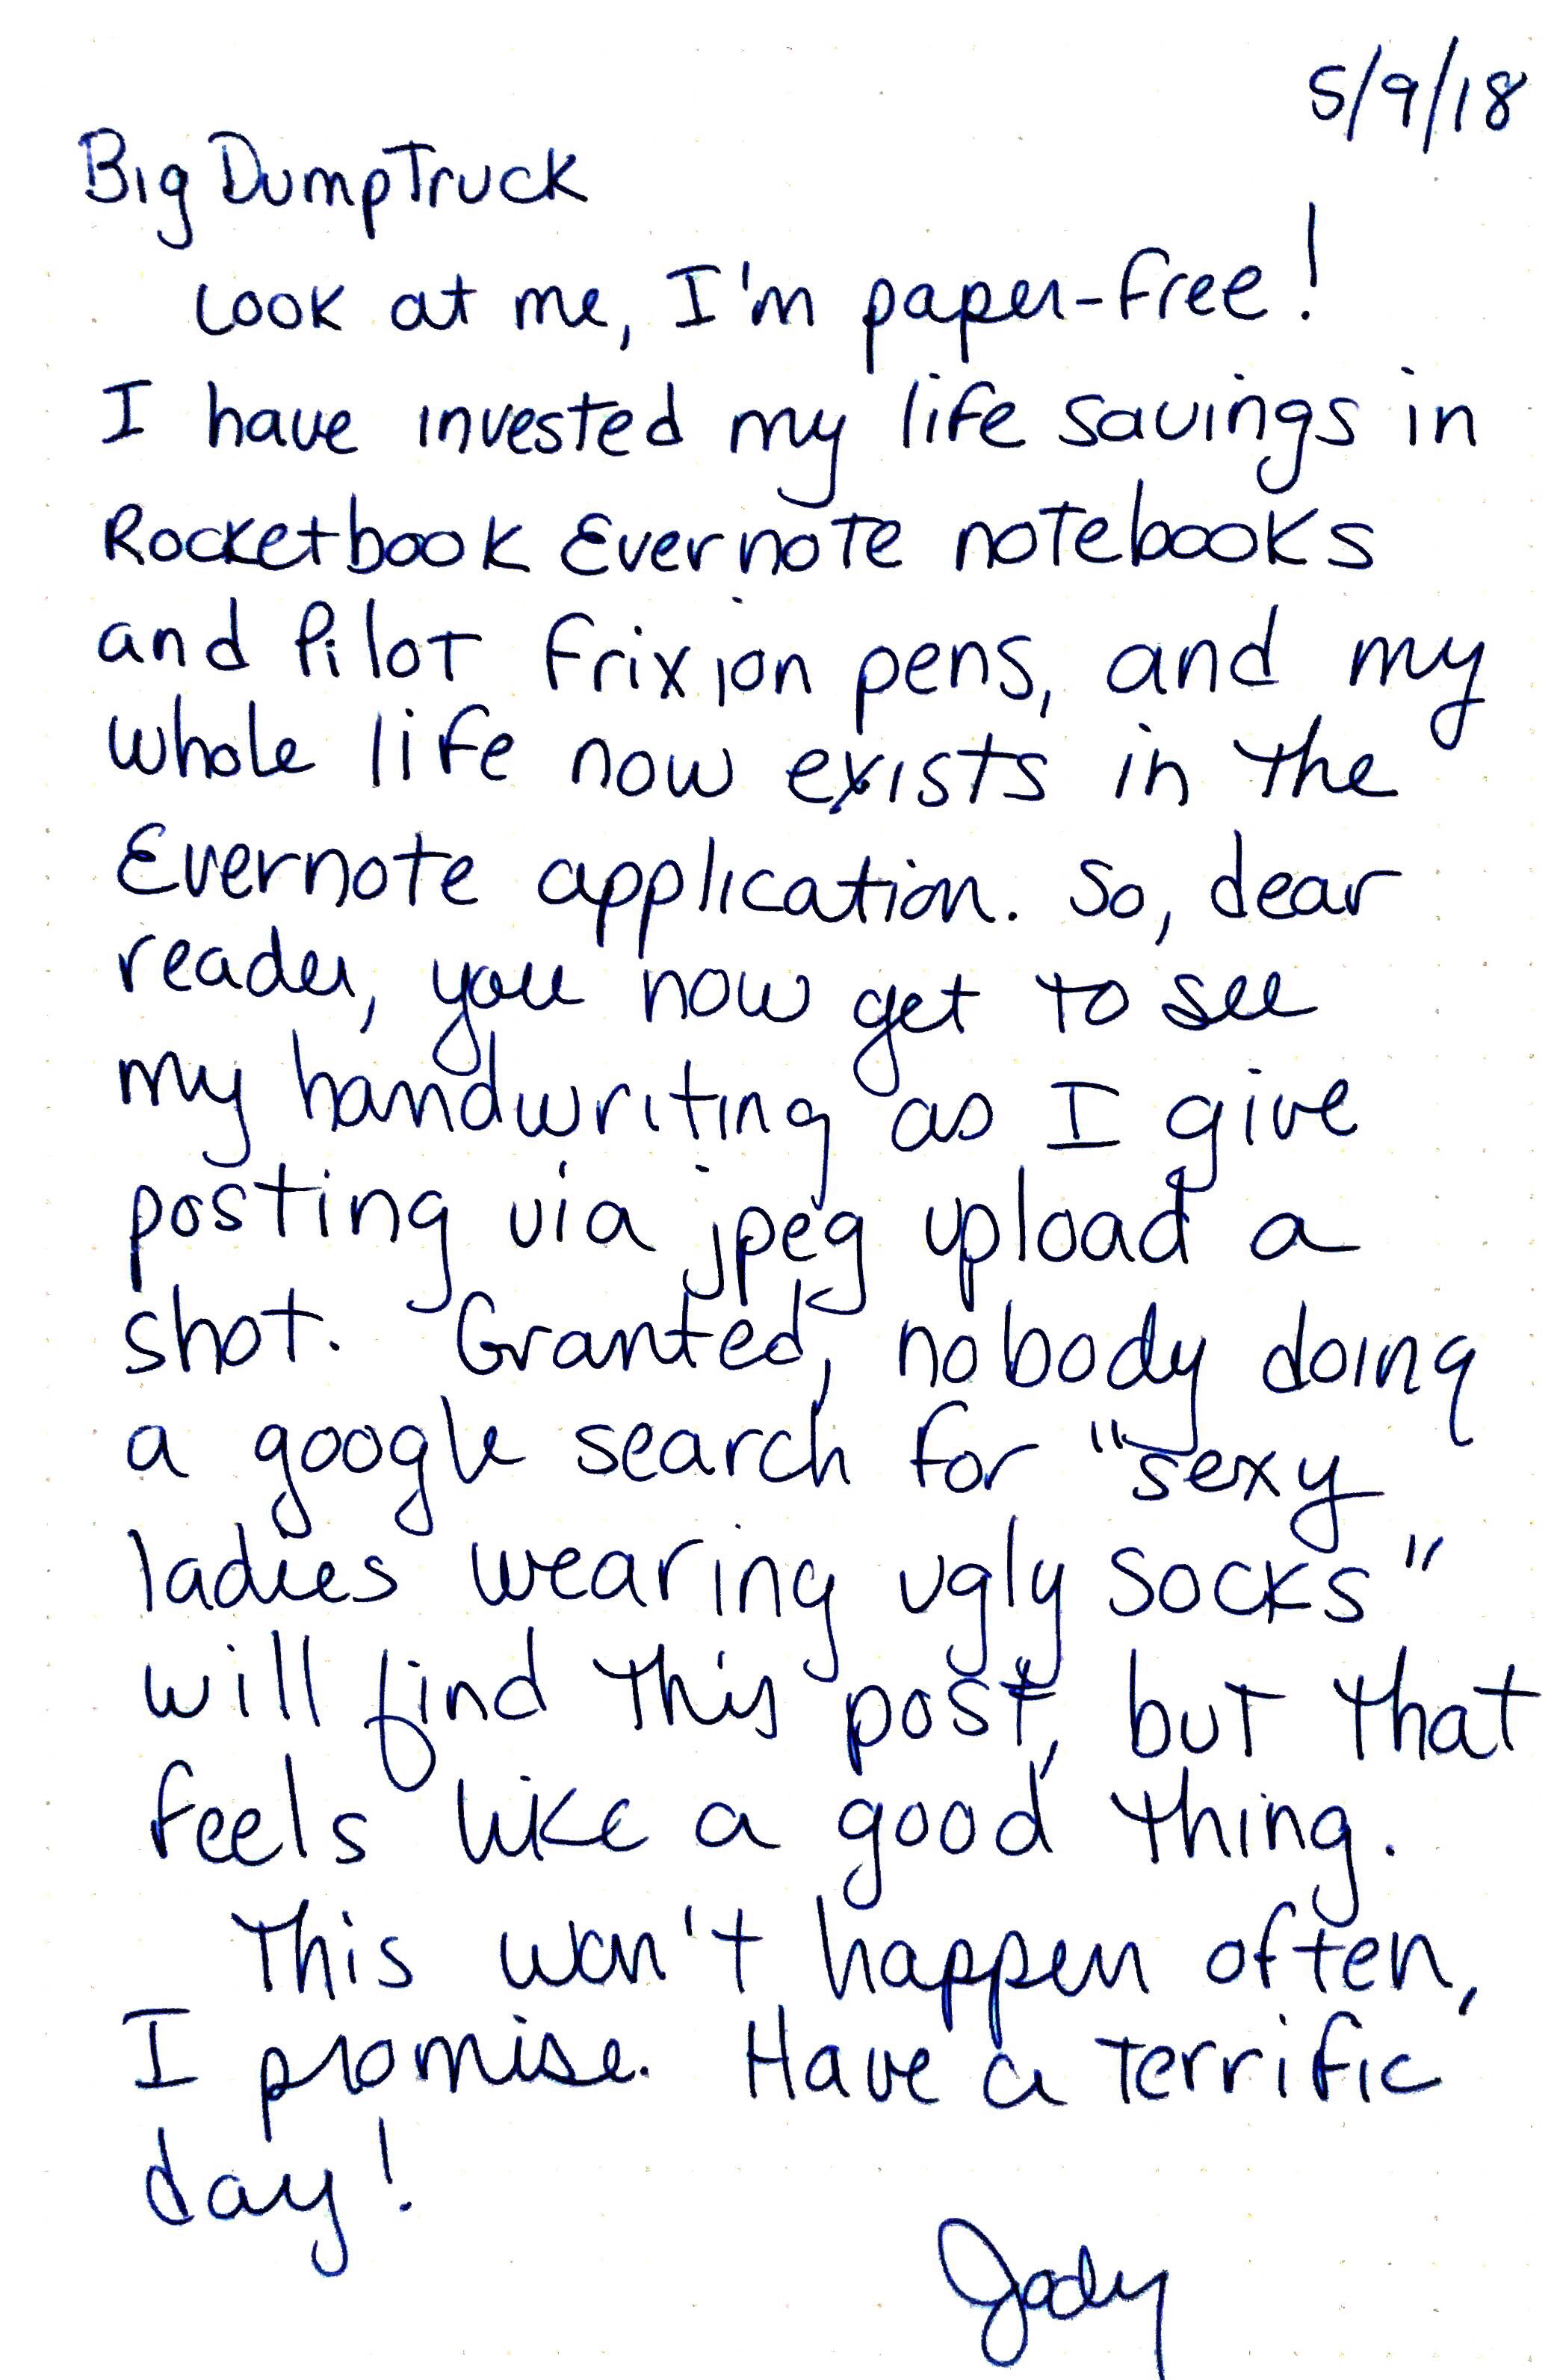 5/9/18
Big DumpTruck
Look at me, I'm paper-free!
I have invested my life savings in
Rocketbook Evernote notebooks
and Pilot Frixion pens, and my
whole life now exists in the
Evernote application. So, dear
reader, you now get to see
my handwriting as I give
posting via jpeg upload a
shot. Granted, nobody doing
a google search for "sexy
ladies wearing ugly socks"
will find this post, but that
feels like a good thing.
This won't happen often,
I promise. Have a terrific
day!
Jody